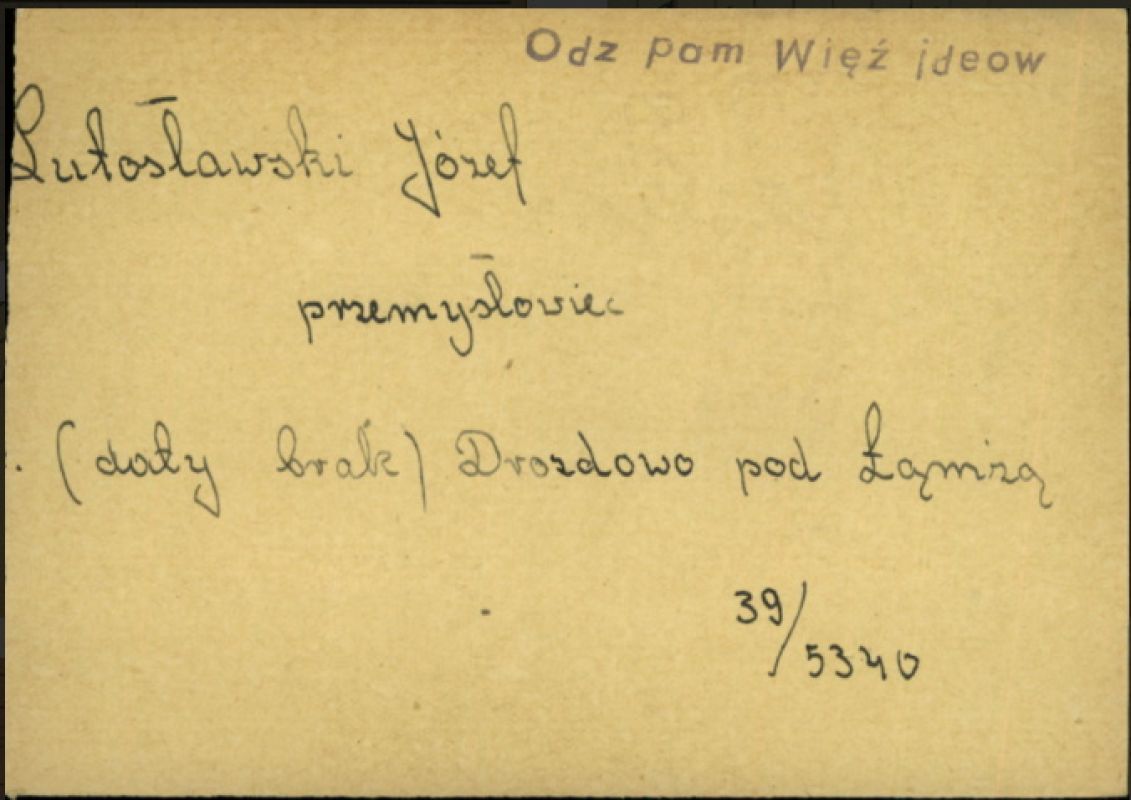 Odz pam Więź ideow
Lutosławski Józef
przemysłowiec
. (daty brak) Drozdowo pod Łąmżą
39/5340